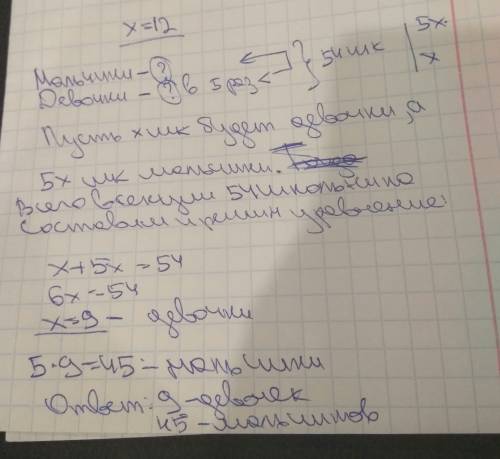 x=12
Мальчики - ? } 54 шк | 5x
Девочки - ? в 5 раз < | x
Пусть x шк будет девочки, а
5x шк мальчики.
Всего в секции 54 школьника
Составим и решим уравнение:
x+5x=54
6x=54
x=9 - девочки
5·9=45 - мальчики
Ответ: 9 - девочек
45 - мальчиков